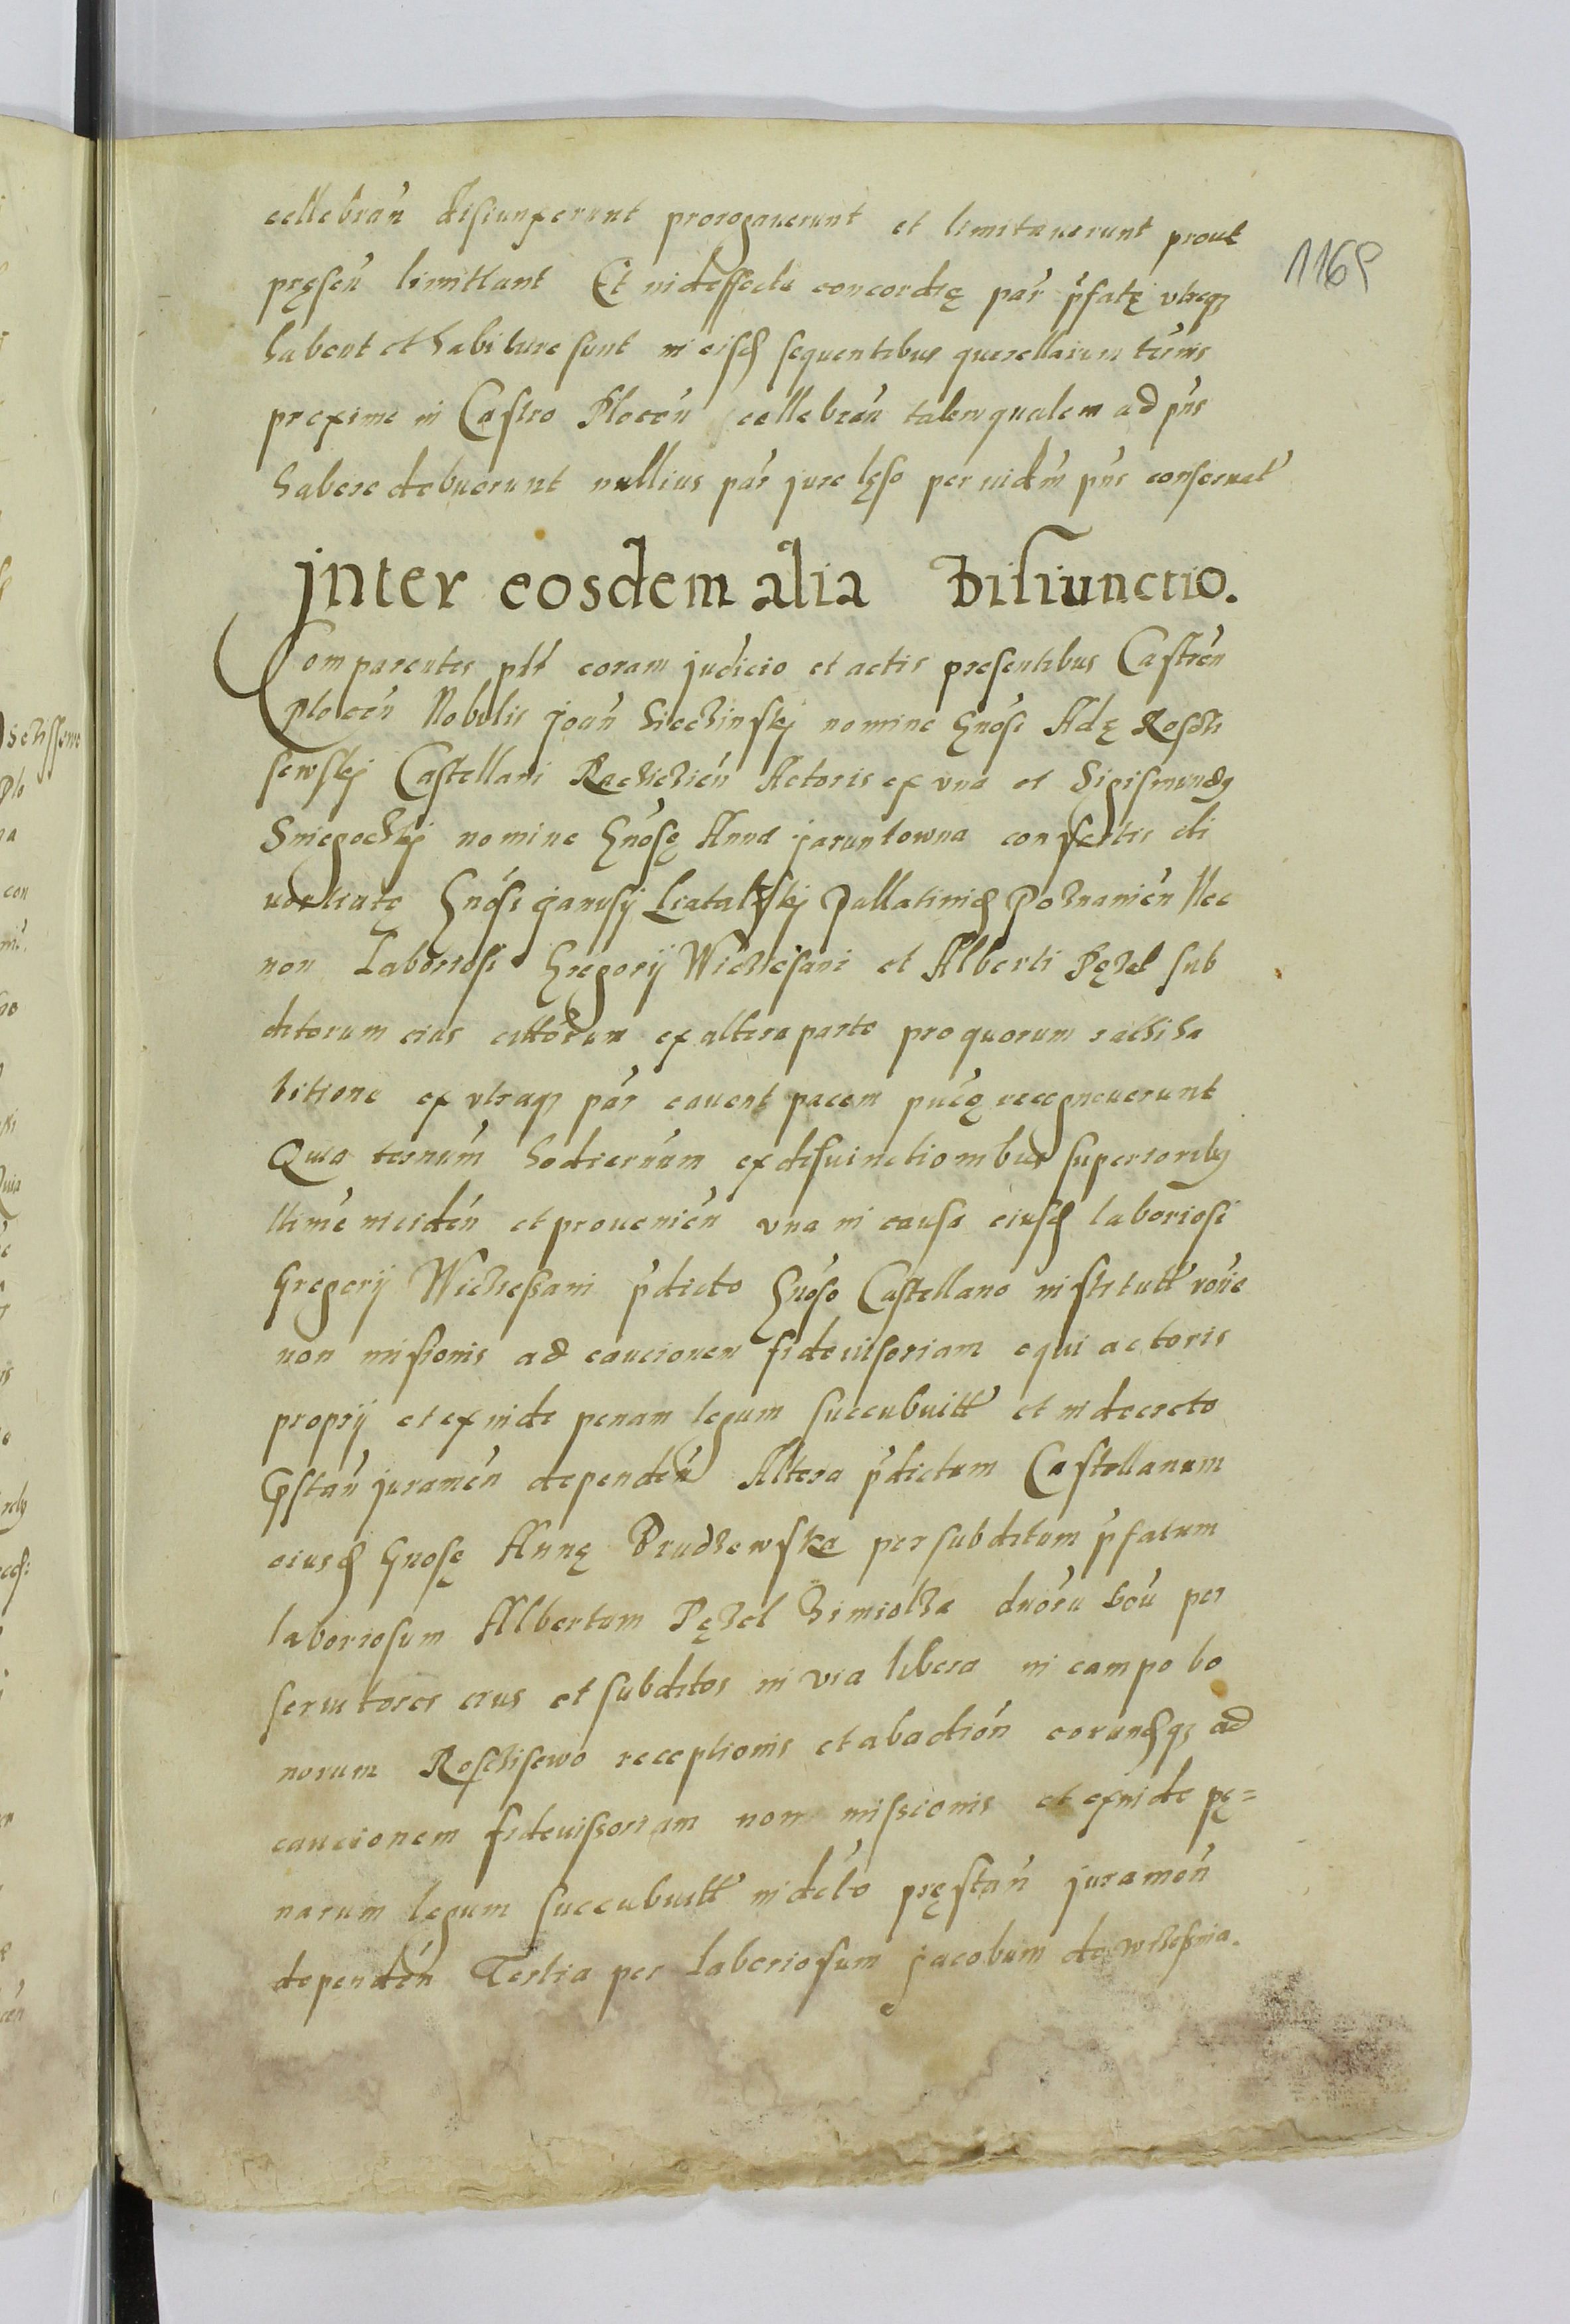 cellebran̄ disiunxerunt prorogauerunt et limitauerunt prout
1169
pręsen̄ limittunt Et in deffectu concordię par̄ p̄fatę vtręq₃
habent et habiture sunt in eisd̄ sequentibus querellarum ter̄nis
proxime in Castro Plocen̄ cellebran̄ talem qualem ad p̄ns
habere debuerunt nullius par̄ jure lęso per indm̄ p̄ns conseruat̄
jnter eosdem alia Disiunctio.
Comparentes pl̄r coram judicio et actis presentibus Castren̄
Plocen̄ Nobilis joan̄ Siechinskj nomine Gn̄osi Adę Rosczi
sewskj Castellani Racziazien̄ Actoris ex vna et Sigismundq
Sniegoczkj nomine Gn̄osę Anna jaruntowna consortis oli
Gn̄osi janusij Liatalskj Pallatinid̄ Poznanien̄ Nec
non Laboriosi Gregorij Wichiesani et Alberti Pęzel sub
ditorum eius cittorum ex altera parte pro quorum rathiha
bitione ex vtraq₃ par̄ cauent pacem pūcę recognouerunt
Quia ternum̄ hodiernum ex disiunctionibus superioribq
ltime inciden̄ et prouenien̄ vna in causa eiusd̄ laboriosi
Gregorij Wichessani p̄dicto Gn̄oso Castellano institutt̄ rōne
non missionis ad caucionem fideiussoriam equi actoris
proprij et exinde penam legum succubuitt̄ et in decreto
pstan̄ juramen̄ dependen̄ Altera p̄dictum Castellanum
eiusd̄ Gnosę Annę Prudzewska per subditum p̄fatum
laboriosum Albertum Pęzel Zimiolka duorū boū per
seruitores eius et subditos in via libera in campo bo
norum Rosczisewo receptionis et abaction̄ eorundq₃ ad
caucionem fideiussoriam non missionis et exinde pę=
narum legum succubuitt̄ in delto pręstan̄ juramen̄
dependen̄ Tertia per Laboriosum jacobum de